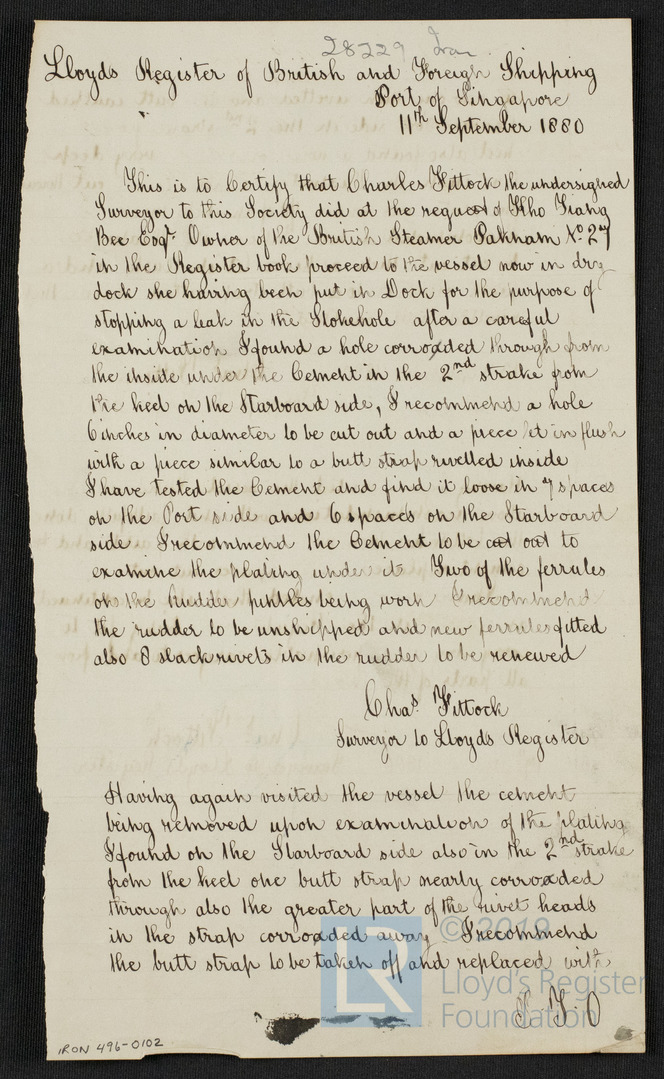 28229 Iron
Lloyds Register of British and Foreign Shipping
Port of Singapore
11th September 1880
This is to Certify that Charles Fittock the undersigned
Surveyor to this Society did at the request of Kho Tiang
Bee Esqr. Owner of the British Steamer Paknam No 27
in the Register book proceed to the vessel now in dry
dock she having been put in Dock for the purpose of
stopping a leak in the Stokehole after a careful
examination I found a hole corroaded through from
the inside under the Cement in the 2nd strake from
the keel on the Starboard side, I recommend a hole
6 inches in diameter to be cut out and a piece let in flush
with a piece similar to a butt strap rivetted inside
I have tested the Cement and find it loose in 7 spaces
on the Port side and 6 spaces on the Starboard
side I recommend the Cement to be cut out to
examine the plating under it Two of the ferrules
on the Rudder pintles being worn I recommend
the rudder to be unshipped and new ferrules fitted
also 8 slack rivets in the rudder to be renewed
Chas. Fittock
Surveyor to Lloyds Register
Having again visited the vessel the cement
being removed upon examination of the plating
I found on the Starboard side also in the 2nd strake
from the keel one butt strap nearly corroaded
through also the greater part of the rivet heads
in the strap corroaded away I recommend
the butt strap to be taken off and replaced with
P.T.O
© 2019
LR
Lloyd's Register
Foundation
IRON 496-0102